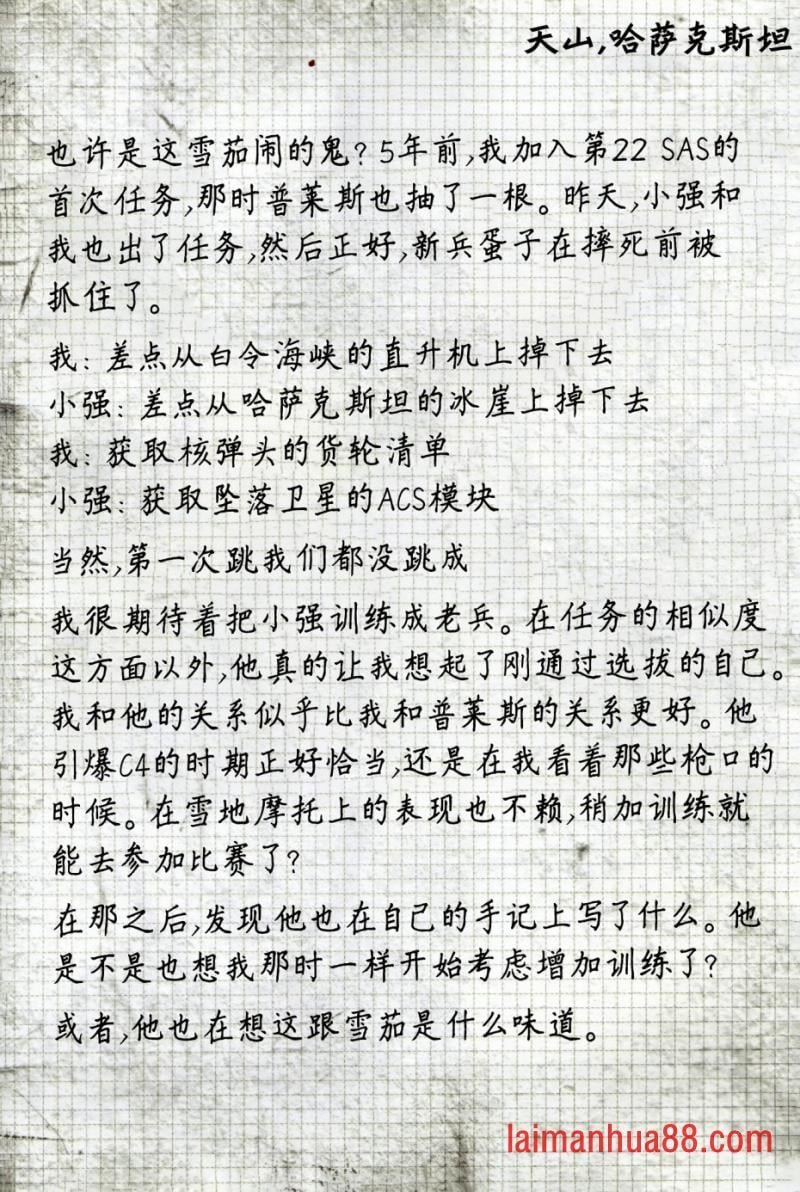 天山,哈萨克斯坦
也许是这雪茄闹的鬼? 5年前,我加入第22 SAS的
首次任务,那时普莱斯也抽了一根。昨天,小强和
我也出了任务,然后正好,新兵蛋子在摔死前被
抓住了。
我: 差点从白令海峡的直升机上掉下去
小强: 差点从哈萨克斯坦的冰崖上掉下去
我: 获取核弹头的货轮清单
小强: 获取坠落卫星的ACS模块
当然,第一次跳我们都没跳成
我很期待着把小强训练成老兵。在任务的相似度
这方面以外,他真的让我想起了刚通过选拔的自己。
我和他的关系似乎比我和普莱斯的关系更好。他
引爆C4的时期正好恰当,还是在我看着那些枪口的
时候。在雪地摩托上的表现也不赖,稍加训练就
能去参加比赛了?
在那之后,发现他也在自己的手记上写了什么。他
是不是也想我那时一样开始考虑增加训练了?
或者,他也在想这跟雪茄是什么味道。
laimanhua88.com